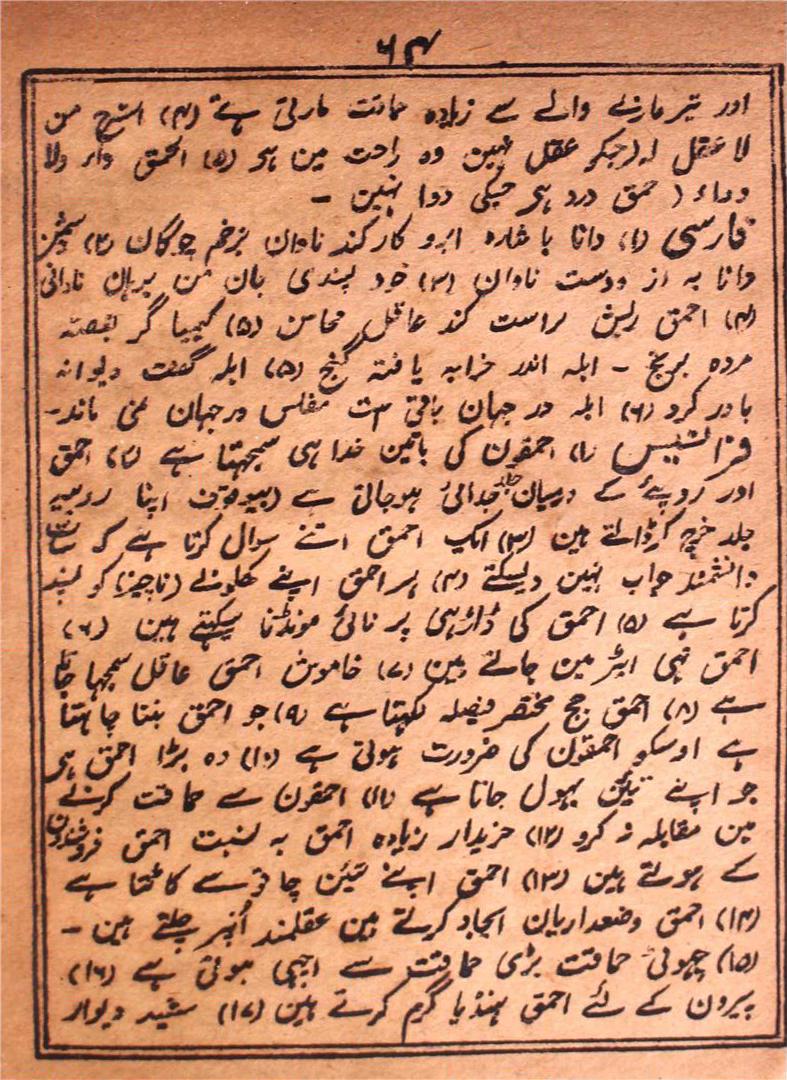 ۶۴
اور تیر مارنے والے سے زیادہ حماقت مارتی ہے (۴) استرح من
لا عقل لہ (جسکو عقل نہین وہ راحت مین ہے (۵) الحمق داء ولا
دواء ( حمق درد ہے جسکی دوا نہین ـ
فارسی (۱) دانا باشارہ ابرو کار کند نادان بزخم چوگان (۲) دشمن
دانا بہ از دوست نادان (۳) خود پسندی جان من برہان نادانی
(۴) احمق ریش راست کند عاقل محاسن (۵) کیمیا گر بغصہ
مردہ برنج ـ ابلہ اندر خرابہ یافتہ گنج (۵) ابلہ گفت دیوانہ
باور کرد (۶) ابلہ در جہان باقی ست مفلس در جہان نمی ماند ـ
فرانسیس (۱) احمقون کی باتین خدا ہی سمجھتا ہے (۲) احمق
اور روپیئے کے درمیان جلد جدائی ہوجاتی ہے (بیوقوف اپنا روپیہ
جلد خرچ کرڈالتے ہین (۳) ایک احمق اتنے سوال کرتا ہے کہ سات
دانشمند جواب نہین دیسکتے (۴) ہر احمق اپنے کھلونے (ناچیز) کو پسند
کرتا ہے (۵) احمق کی ڈاڑہی پر نائی مونڈنا سیکھتے ہین (۶)
احمق ہی مین جاتے ہین (۷) خاموش احمق عاقل سمجھا جاتا
ہے (۸) احمق جج مختصر فیصلہ لکھتا ہے (۹) جو احمق بننا چاہتا
ہے اوسکو احمقون کی ضرورت ہوتی ہے (۱۰) وہ بڑا احمق ہی
جو اپنے تئین بہول جاتا ہے (۱۱) احمقون سے حماقت کرنے
مین مقابلہ نہ کرو (۱۲) خریدار زیادہ احمق بہ نسبت احمق فروشندون
کے ہوتے ہین (۱۳) احمق اپنے تئین چاقو سے کاٹتا ہے
(۱۴) احمق وضعداریان ایجاد کرتے ہین عقلمند اُنپر چلتے ہین ـ
(۱۵) چہوٹی حماقت بڑی حماقت سے اچہی ہوتی ہے (۱۶)
پیرون کے لئے احمق ہنڈیا گرم کرتے ہین (۱۷) سفید دیوار